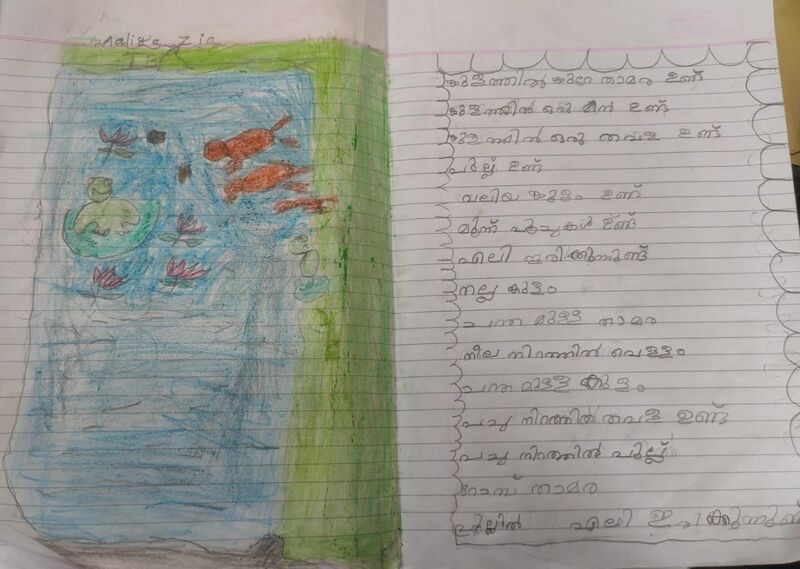 Maliga Zia
1 B
കുളത്തിൽ കുറേ താമര ഉണ്ട്
കുളത്തിൽ ഒരു മീൻ ഉണ്ട്
കുളത്തിൽ ഒരു തവള ഉണ്ട്
പുല്ല് ഉണ്ട്
വലിയ കുളം ഉണ്ട്
മൂന്ന് പൂച്ചകൾ ഉണ്ട്
എലി ഇരിക്കുന്നുണ്ട്
നല്ല കുളം
ചന്ത മുള്ള താമര
നീല നിറത്തിൽ വെള്ളം
ചന്ത മുള്ള കുളം
പച്ച നിറത്തിൽ തവള ഉണ്ട്
പച്ച നിറത്തിൽ പുല്ല്
റോസ് താമര
പുല്ലിൽ എലി ഇരിക്കുന്നുണ്ട്